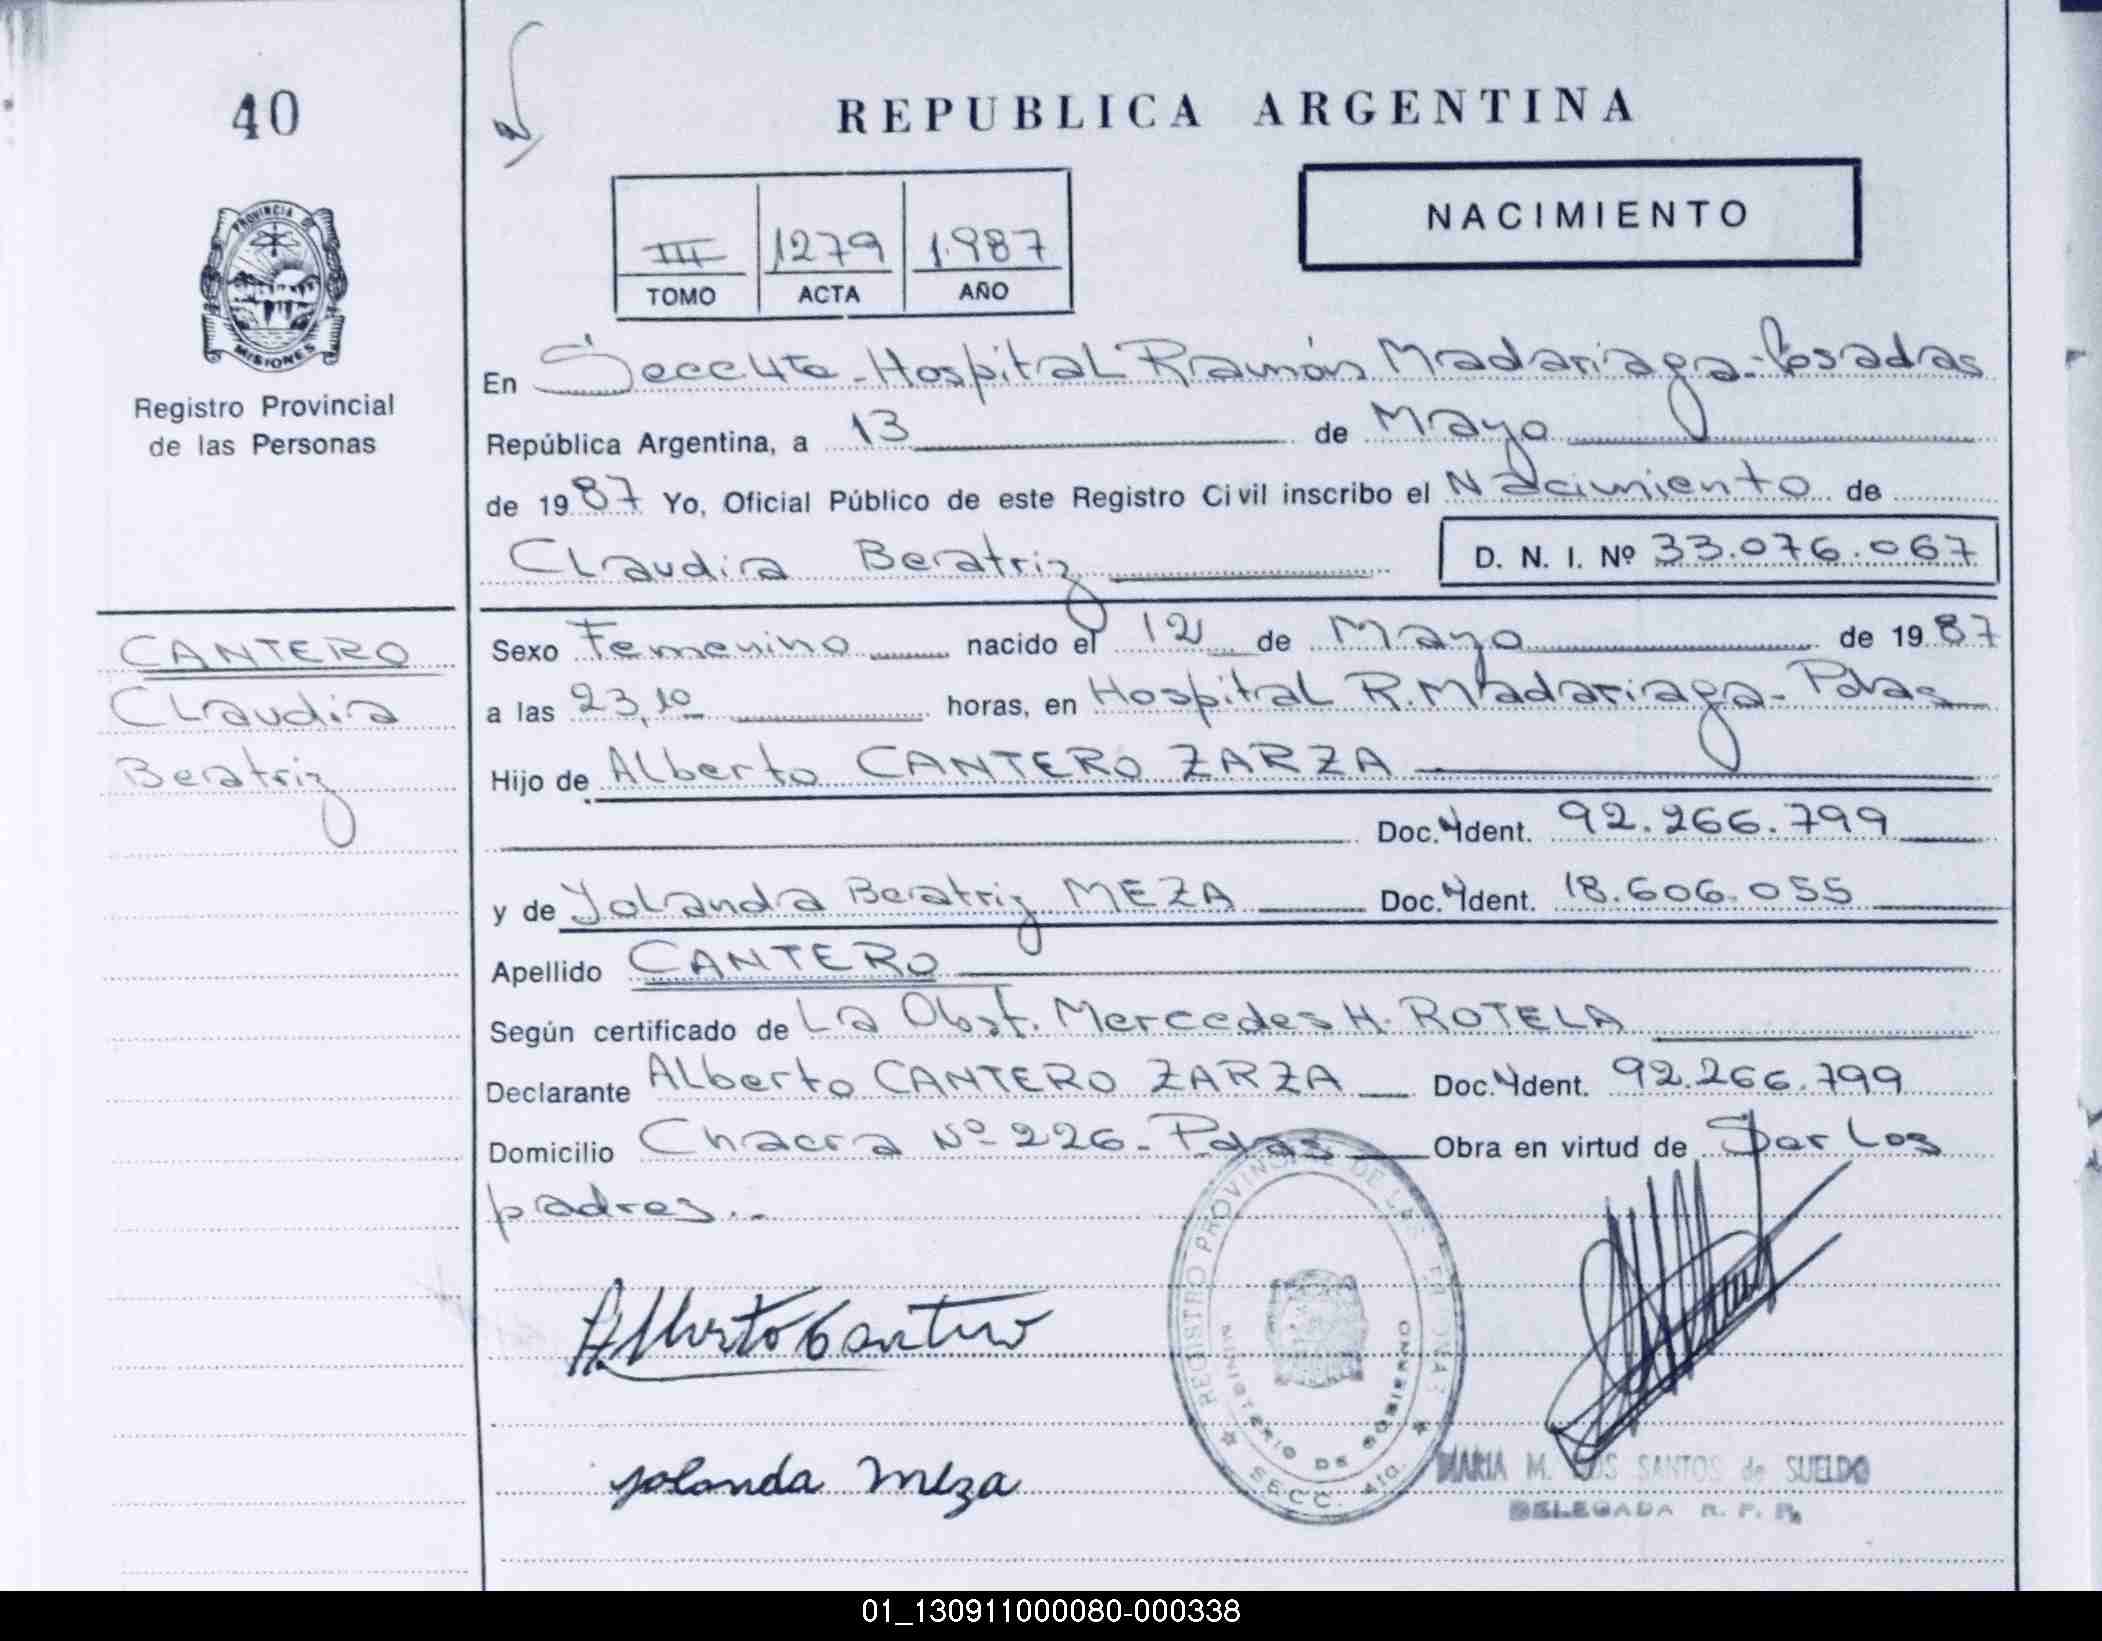 40
REPUBLICA ARGENTINA
PROVINCIA DE
MISIONES
Registro Provincial
de las Personas
III 1279 1.987
TOMO ACTA AÑO
NACIMIENTO
En Secc 4ta - Hospital Ramón Madariaga - Posadas
República Argentina, a 13 de Mayo
de 1987 Yo, Oficial Público de este Registro Civil inscribo el Nacimiento de
Claudia Beatriz D. N. I. Nº 33.076.067
CANTERO
Claudia
Beatriz
Sexo Femenino nacido el 12 de Mayo de 1987
a las 23,10 horas, en Hospital R. Madariaga - Pdas
Hijo de Alberto CANTERO ZARZA
Doc. Ident. 92.266.799
y de Yolanda Beatriz MEZA Doc. Ident. 18.606.055
Apellido CANTERO
Según certificado de La Obst. Mercedes H. ROTELA
Declarante Alberto CANTERO ZARZA Doc. Ident. 92.266.799
Domicilio Chacra Nº 226 - Pdas Obra en virtud de Ser Los
padres.-
Alberto Cantero
Yolanda Meza
REGISTRO PROVINCIAL DE LAS PERSONAS
MINISTERIO DE GOBIERNO
SECC. 4ta.
MARIA M. DOS SANTOS de SUELDO
DELEGADA R. P. P.
01_130911000080-000338